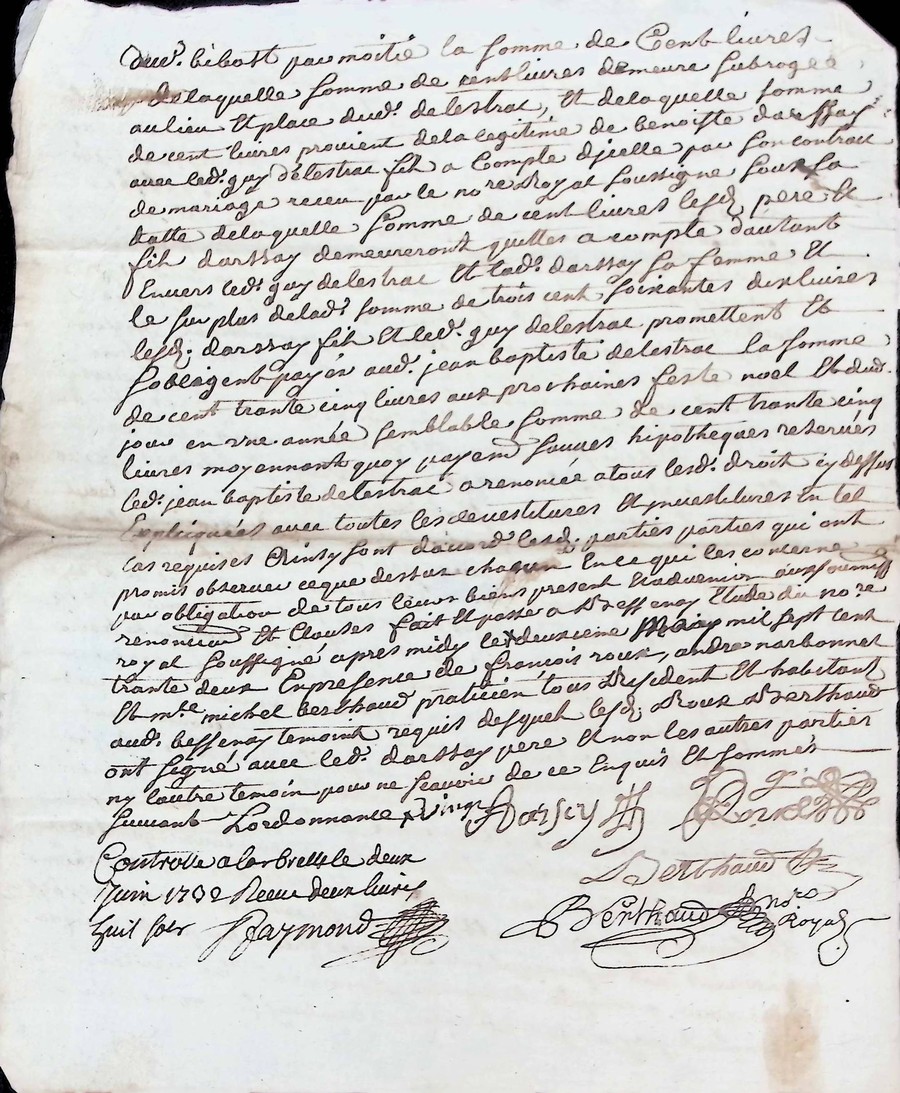 dud. bibost par moitié la somme de Cent livres
de laquelle somme de cent livres demeure subrogée
au lieu et place dud. delestrac, Et de laquelle somme
de cent livres provient de la legitime de benoiste darssay
avec led. guy delestrac fils a Compte d'jcelle par son contract
de mariage receu par le nore Royal soussigné sous sa
datte de laquelle somme de cent livres lesd. pere Et
fils darssay demeureront quittes a compte d'autant
Envers led. guy delestrac Et lad. darssay sa femme Et
le surplus de lad. somme de trois cent soixantes dix livres
lesd. darssay fils Et led. guy delestrac promettent Et
sobligent payer aud. jean baptiste delestrac la somme
de cent trante cinq livres aux prochaines feste noel Et dud.
jour en une année semblable somme de cent trante cinq
livres moyennant quoy payem sauves hipotheques reservés
led. jean baptiste delestrac a renoncé a tous lesd. droit cy dessus
Expliquées avec toutes les devestitures Et jnvestitures En tel
cas requises Ainsy sont d'acord lesd. parties parties qui ont
promis observer ce que dessus chacun En ce qui les concerne
par obligation de tous leurs biens present Et advenir aux soumiss
renonciaōn Et Clauses fait Et passé a Bessenay Etude du nore
royal soussigné apres midy le deuxieme May mil sept cent
trante deux En presence de françois roux, andré narbonnet
Et me michel berthaud praticien tous Resident Et habitant
aud. bessenay temoint requis desquels lesd. Roux Berthaud
ont signé avec led. darssay pere Et non les autres partier
ny lautre temoin pour ne scavoir de ce Enquis Et sommés
suivant Lordonnance
Darsey Roux
Controlle a larbresle le deux
Berthaud
juin 1732 Receu deux livres
huit sols Raymond
Berthaud nore Royal